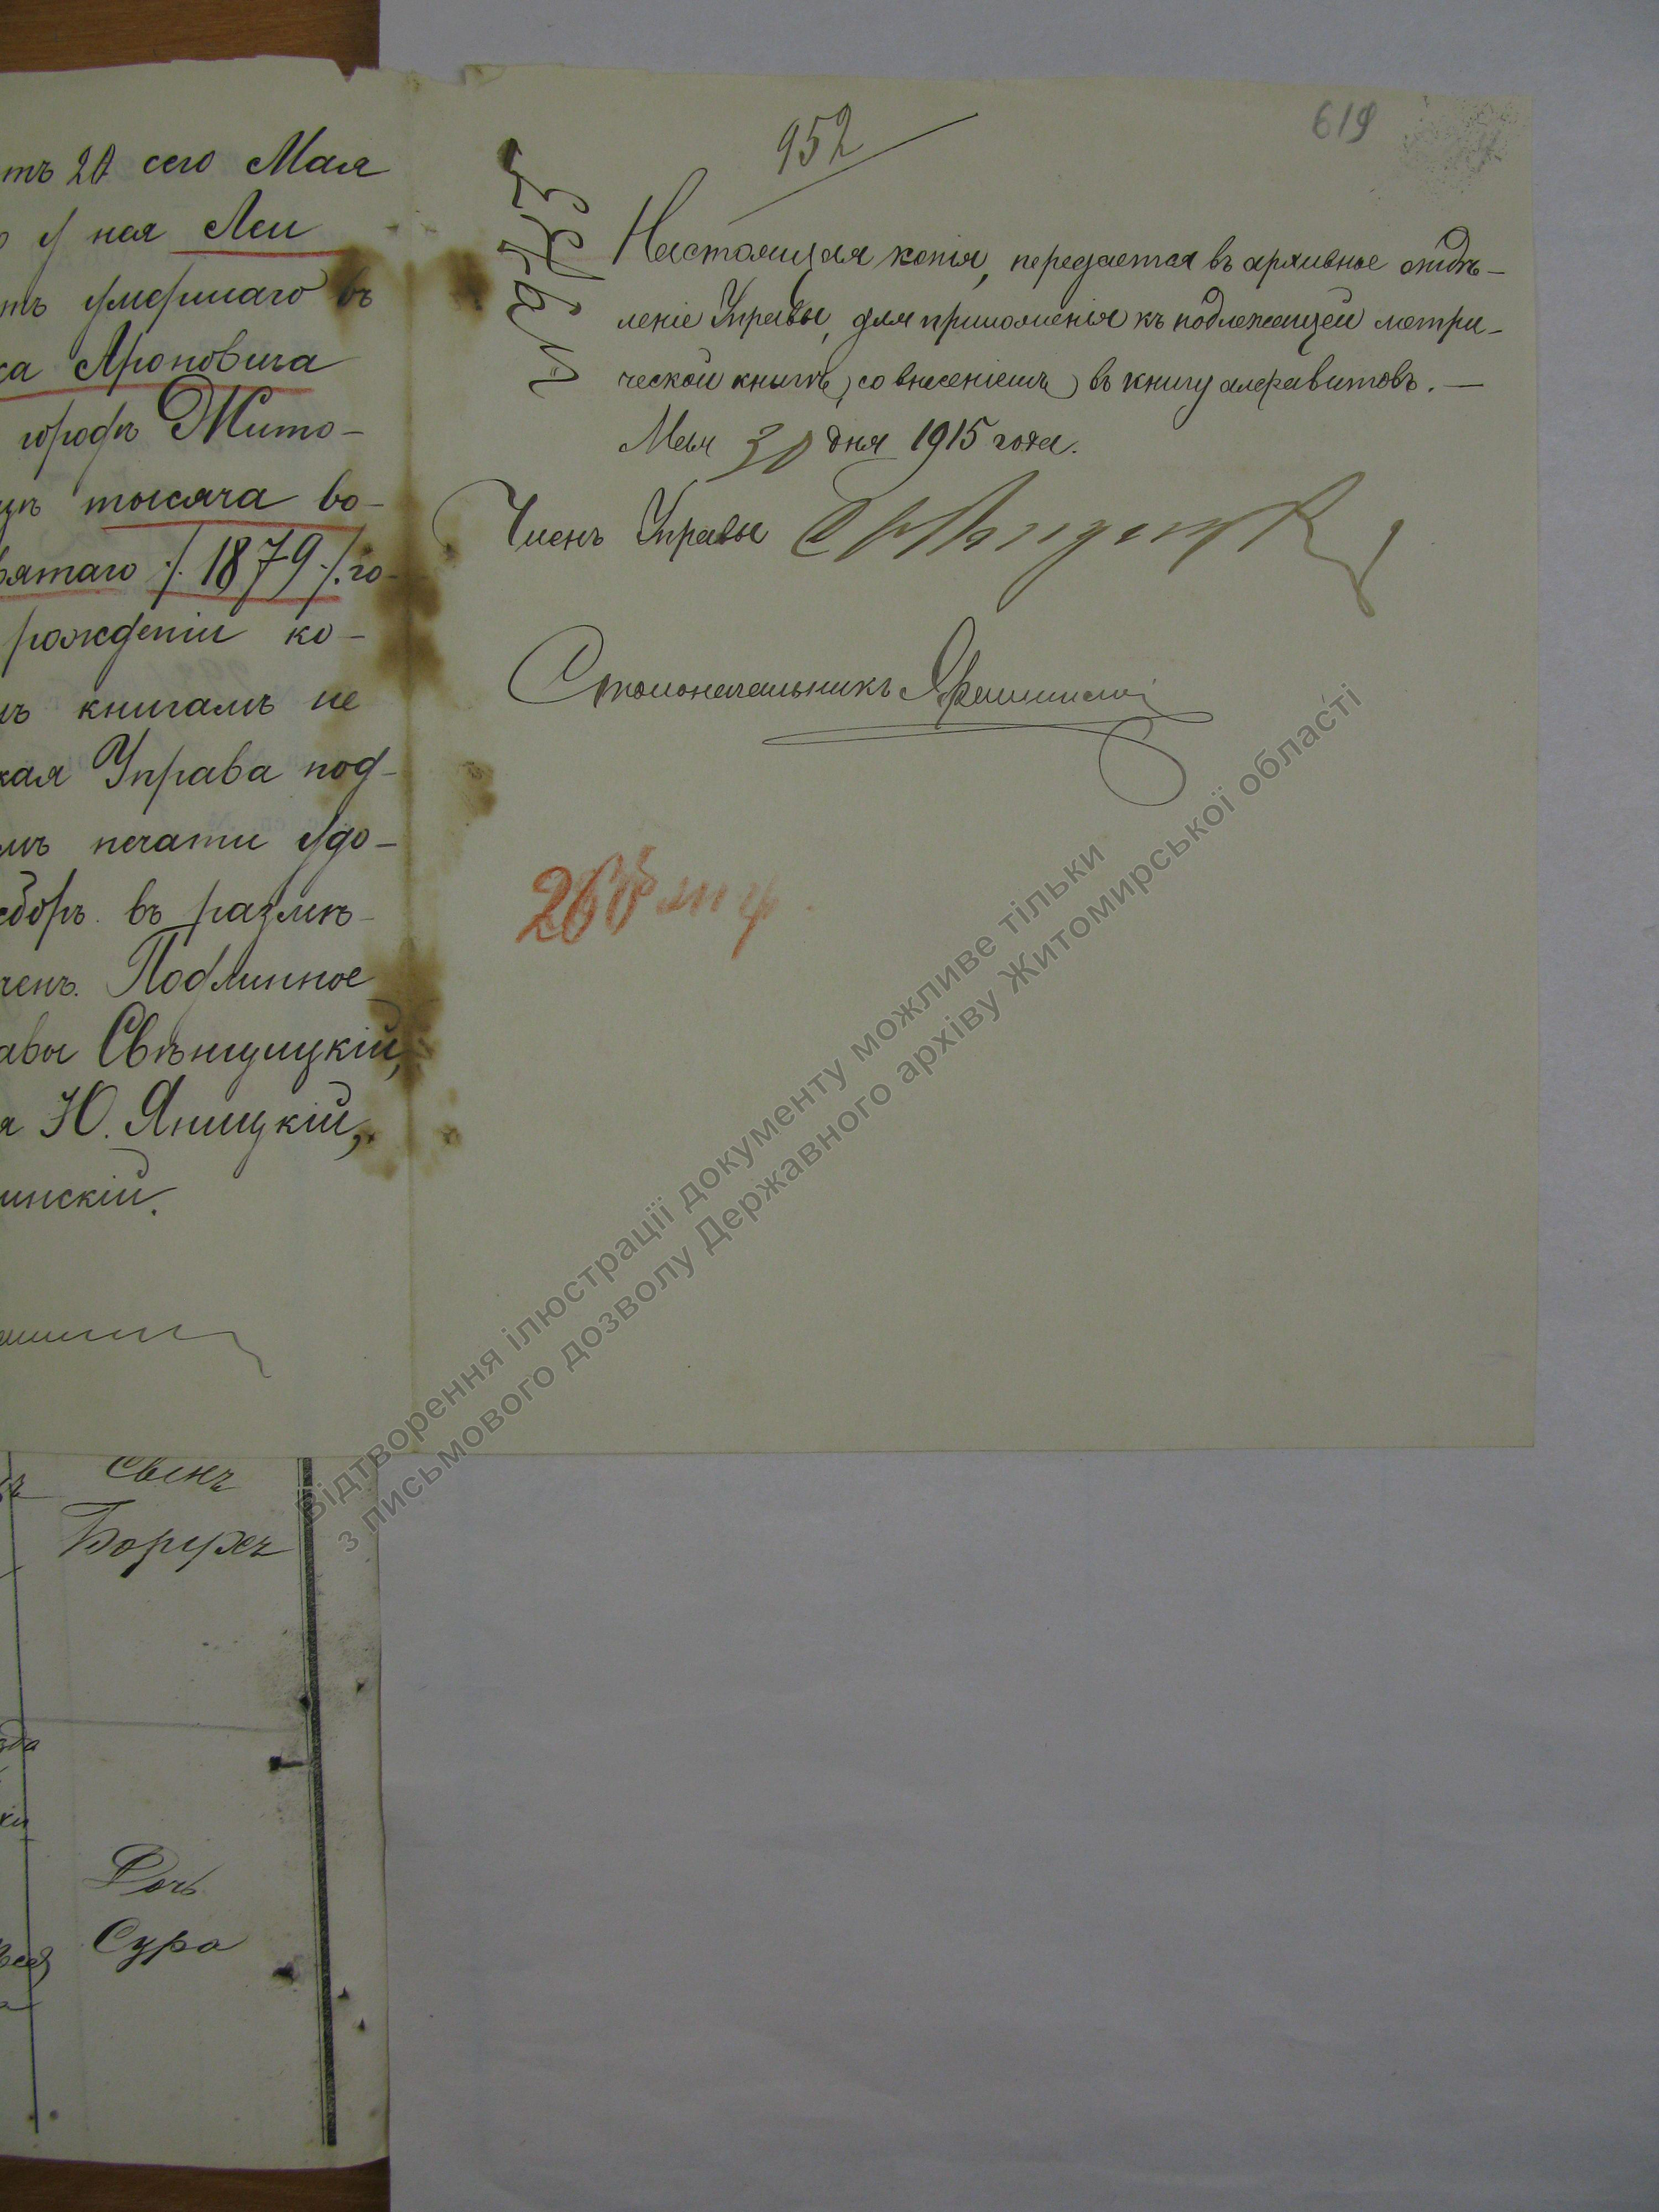 тъ 20 сего Мая
у ная Леи
тъ умершаго въ
ка Ароновича
городъ Жито-
тысяча во-
вятаго ./. 1879 ./. го-
рожденіи ко-
ъ книгамъ не
кая Управа под-
мъ печати удо-
сборъ въ размѣ-
ченъ. Подлинное
авы Свѣнцицкій,
я Ю. Яницкій,
инскій.
952
619
Настоящая копія, передается въ архивное отдѣ-
леніе Управы, для приложенія къ подлежащей метри-
ческой книгѣ, со внесеніемъ въ книгу алфавитовъ. —
Мая 30 дня 1915 года.
Членъ Управы
Столоначальникъ
Сынъ
Борухъ
Дочь
Сура
Відтворення ілюстрації документу можливе тільки
з письмового дозволу Державного архіву Житомирської області